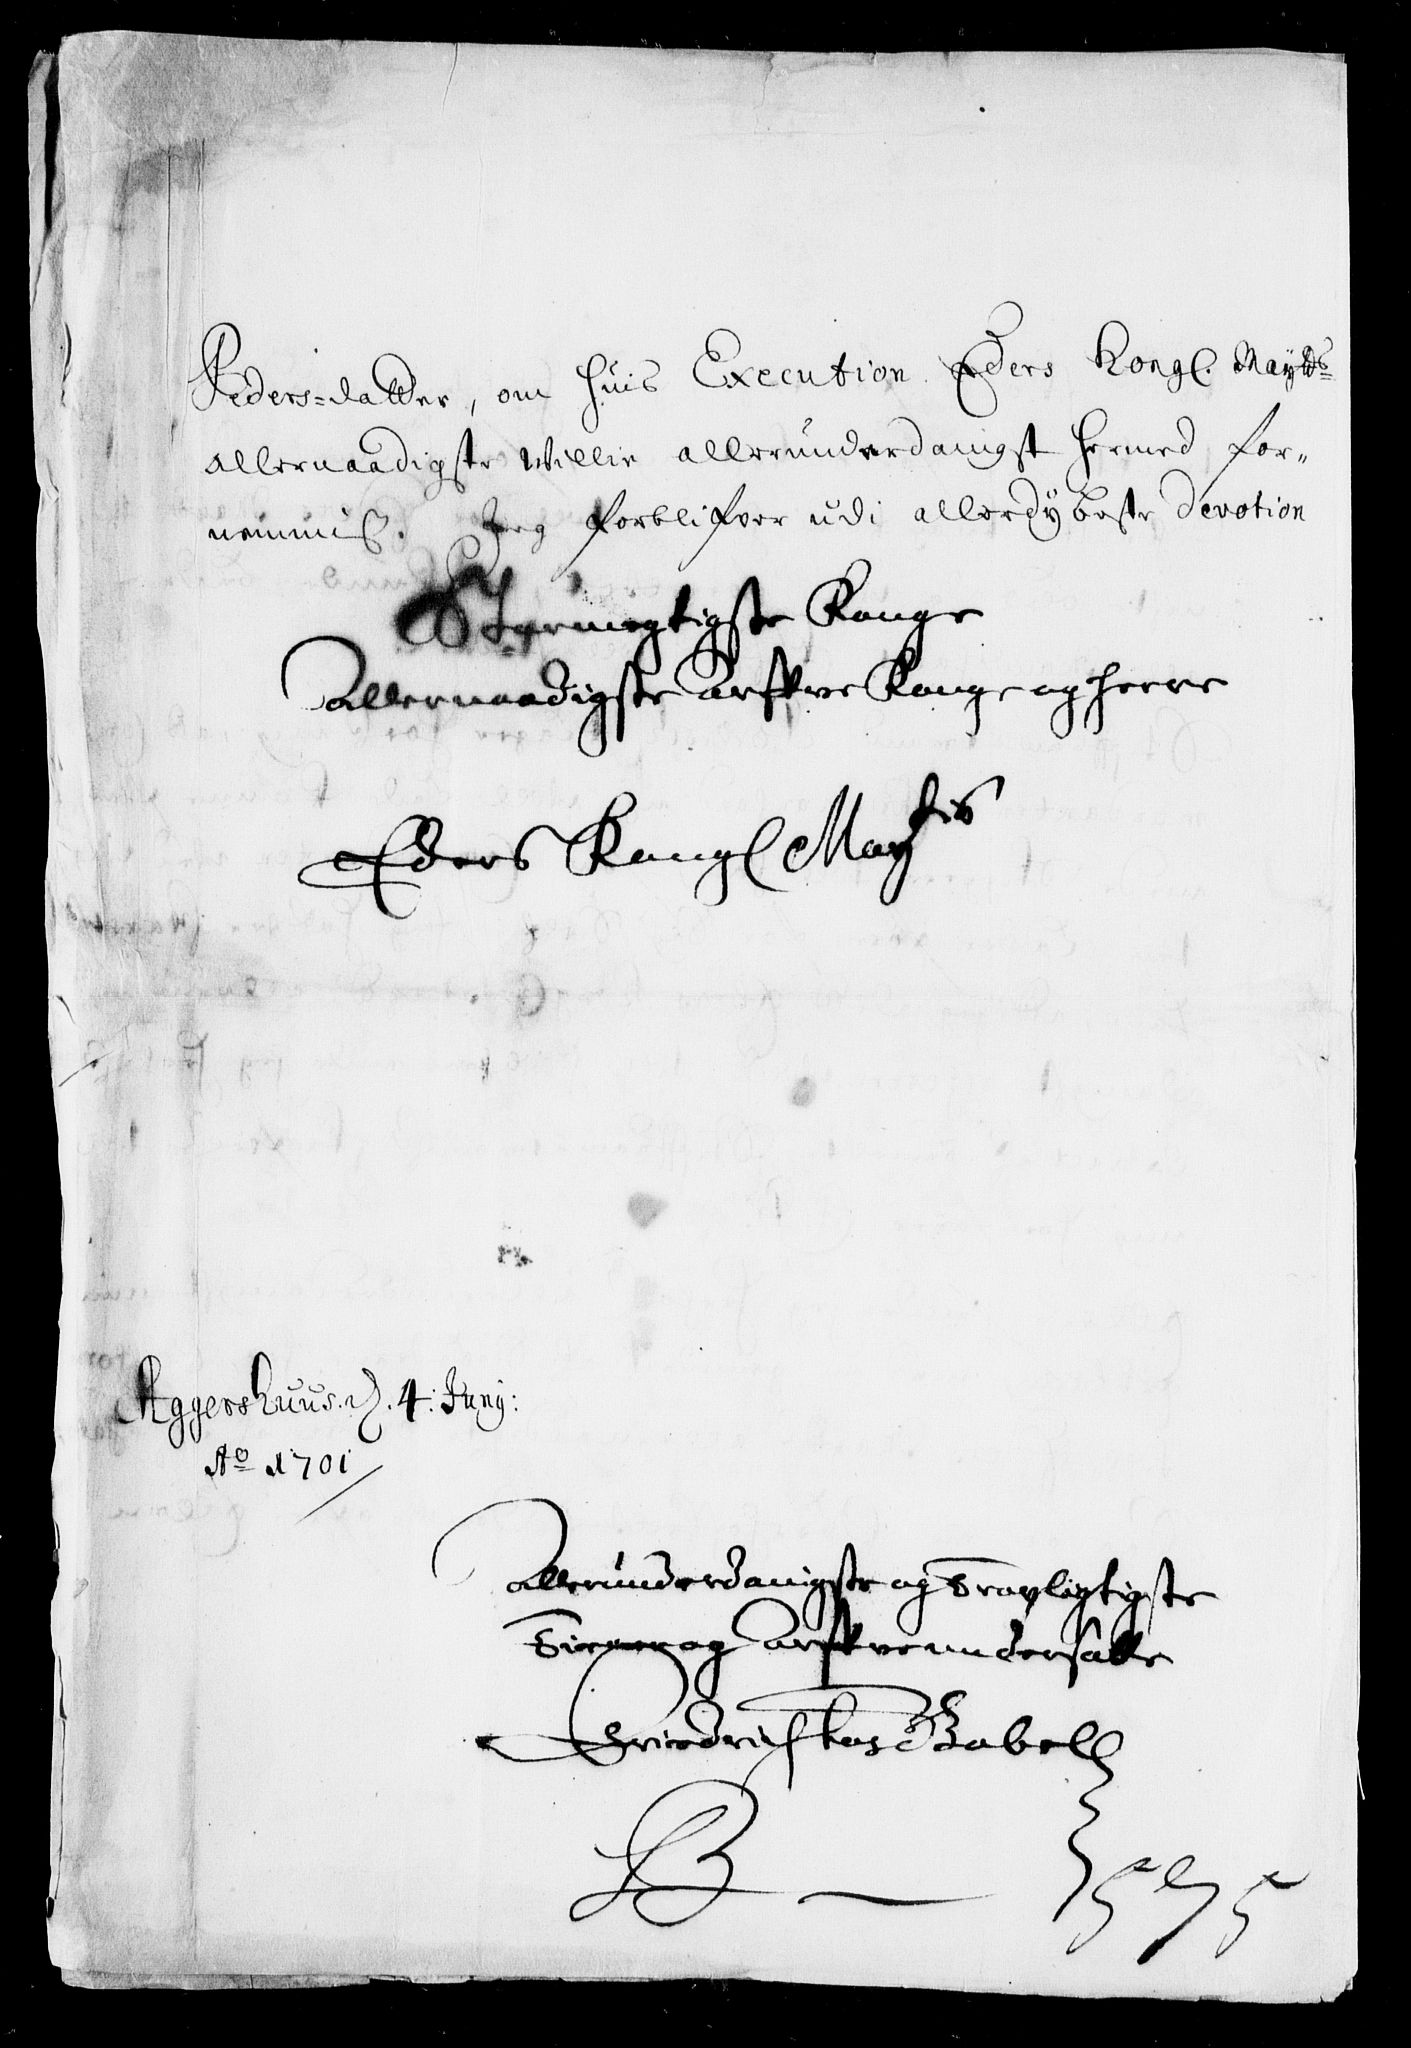 Peders-datter, om huis Execution Eders Kongl. Maÿtts
allernaadigste Villie allerunderdanigst hermed for-
nemmis. Jeg forblifver udi allerdybeste devotion
Stormegtigste Konge
Allernaadigste Arfve Konge og Herre
Eders Kongl Maytis
Aggershuus. d. 4: Junÿ:
Ao 1701
Allerunderdanigste og Trovligtigste
Tienner og Arfve undersatte
Friedrich Gabell
B 575